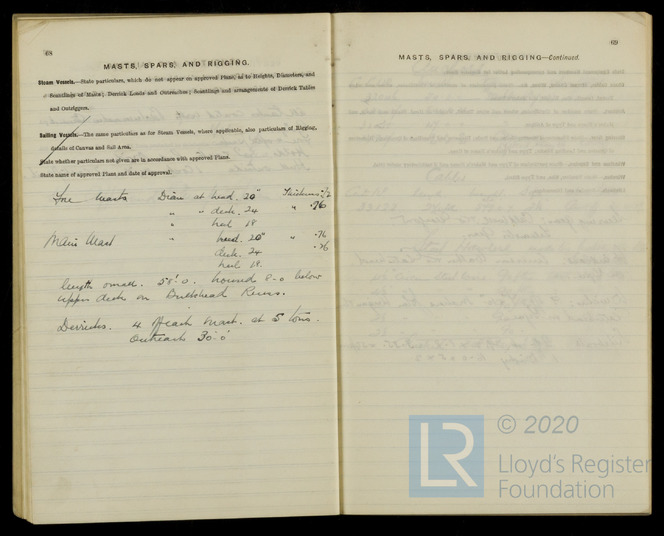 68
MASTS, SPARS, AND RIGGING.
Steam Vessels.—State particulars, which do not appear on approved Plans, as to Heights, Diameters, and
Scantlings of Masts; Derrick Loads and Outreaches; Scantlings and arrangements of Derrick Tables
and Outriggers.
Sailing Vessels.—The same particulars as for Steam Vessels, where applicable, also particulars of Rigging,
details of Canvas and Sail Area.
State whether particulars not given are in accordance with approved Plans.
State name of approved Plans and date of approval.
Fore Masts Diam at head. 20" Thickness
" " deck. 24 " .76
" heel 18
Main Mast " head. 20" " .76
deck. 24 .76
heel 18.
length overall. 58'-0. housed 8-0 below
upper deck on Bulkhead
Derricks. 4 off each Mast. at 5 tons.
Outreach 30'-0"
69
MASTS, SPARS, AND RIGGING—Continued.
LR
© 2020
Lloyd's Register
Foundation